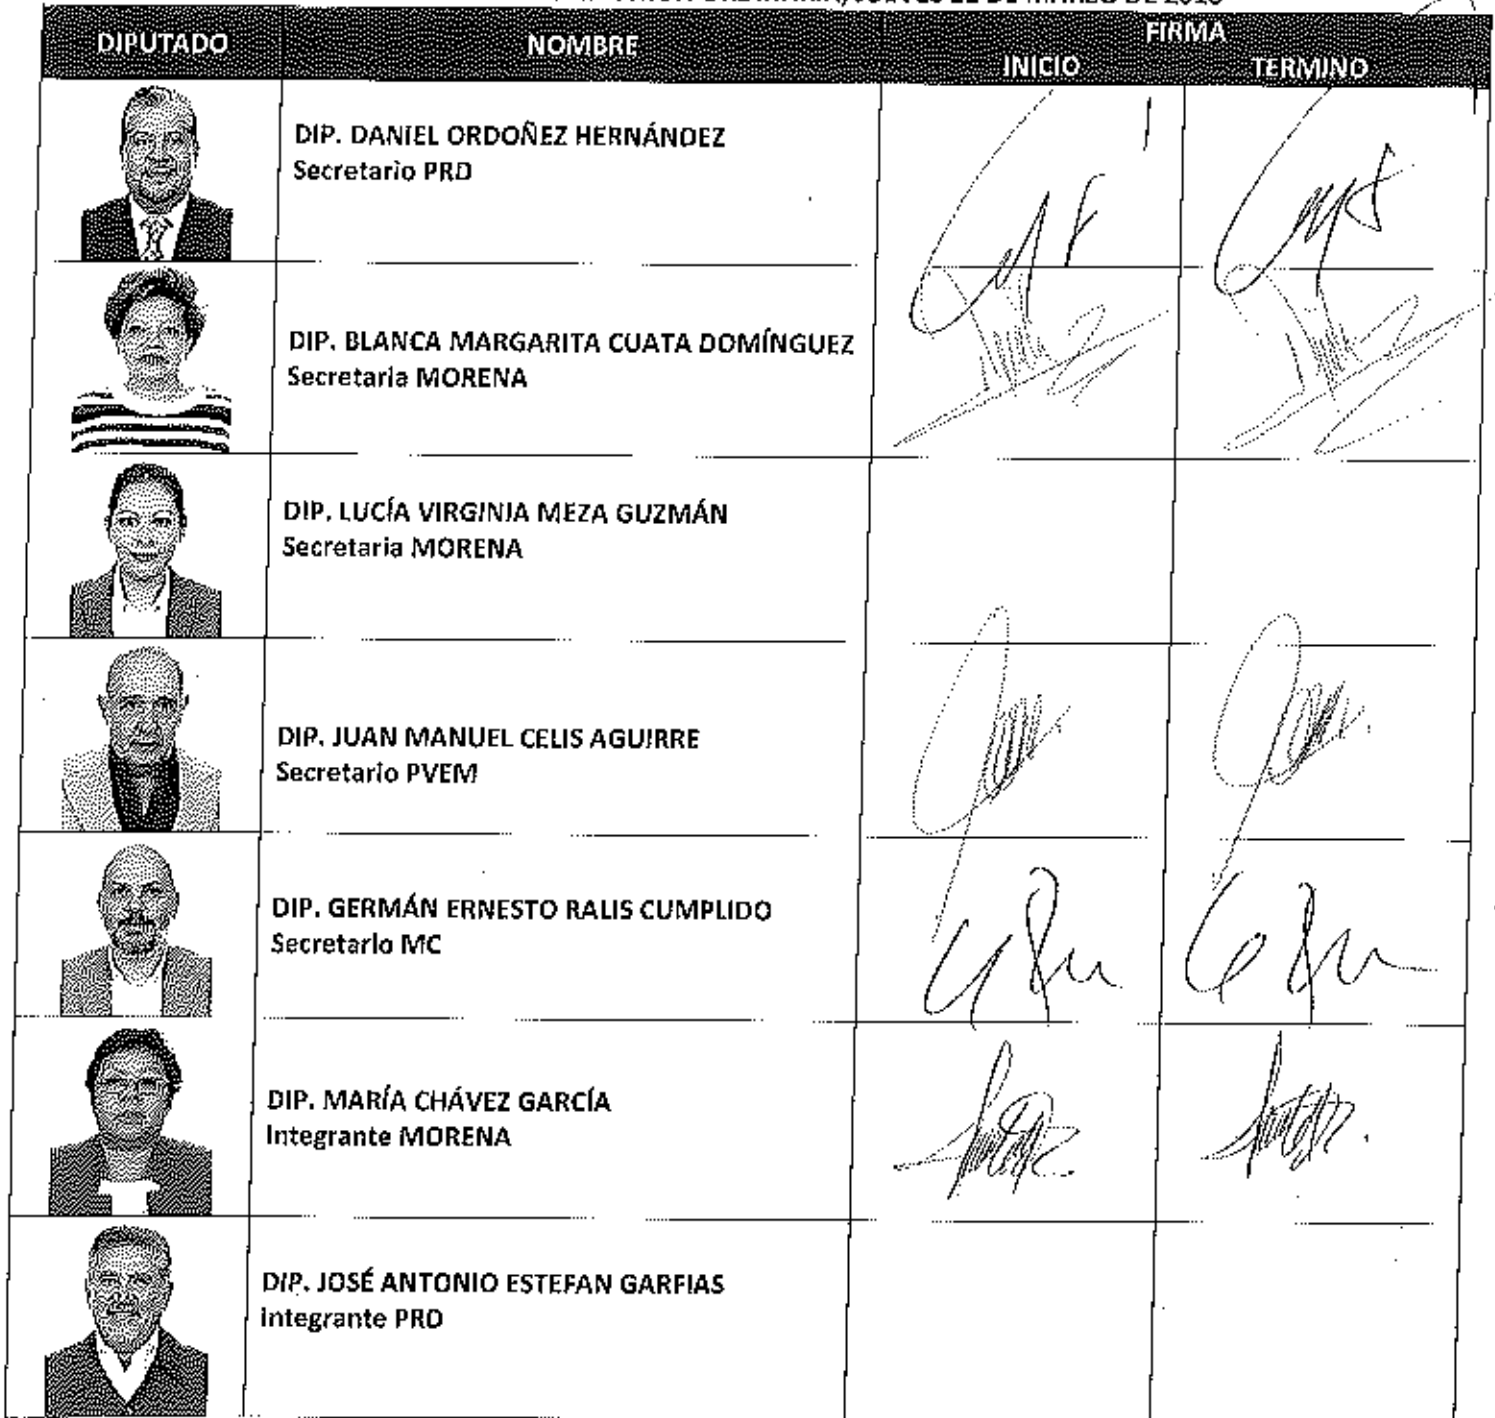 DE 2018
DIPUTADO NOMBRE FIRMA
INICIO TERMINO
DIP. DANIEL ORDOÑEZ HERNÁNDEZ
Secretario PRD
DIP. BLANCA MARGARITA CUATA DOMÍNGUEZ
Secretaria MORENA
DIP. LUCÍA VIRGINIA MEZA GUZMÁN
Secretaria MORENA
DIP. JUAN MANUEL CELIS AGUIRRE
Secretario PVEM
DIP. GERMÁN ERNESTO RALIS CUMPLIDO
Secretario MC
DIP. MARÍA CHÁVEZ GARCÍA
Integrante MORENA
DIP. JOSÉ ANTONIO ESTEFAN GARFIAS
Integrante PRD